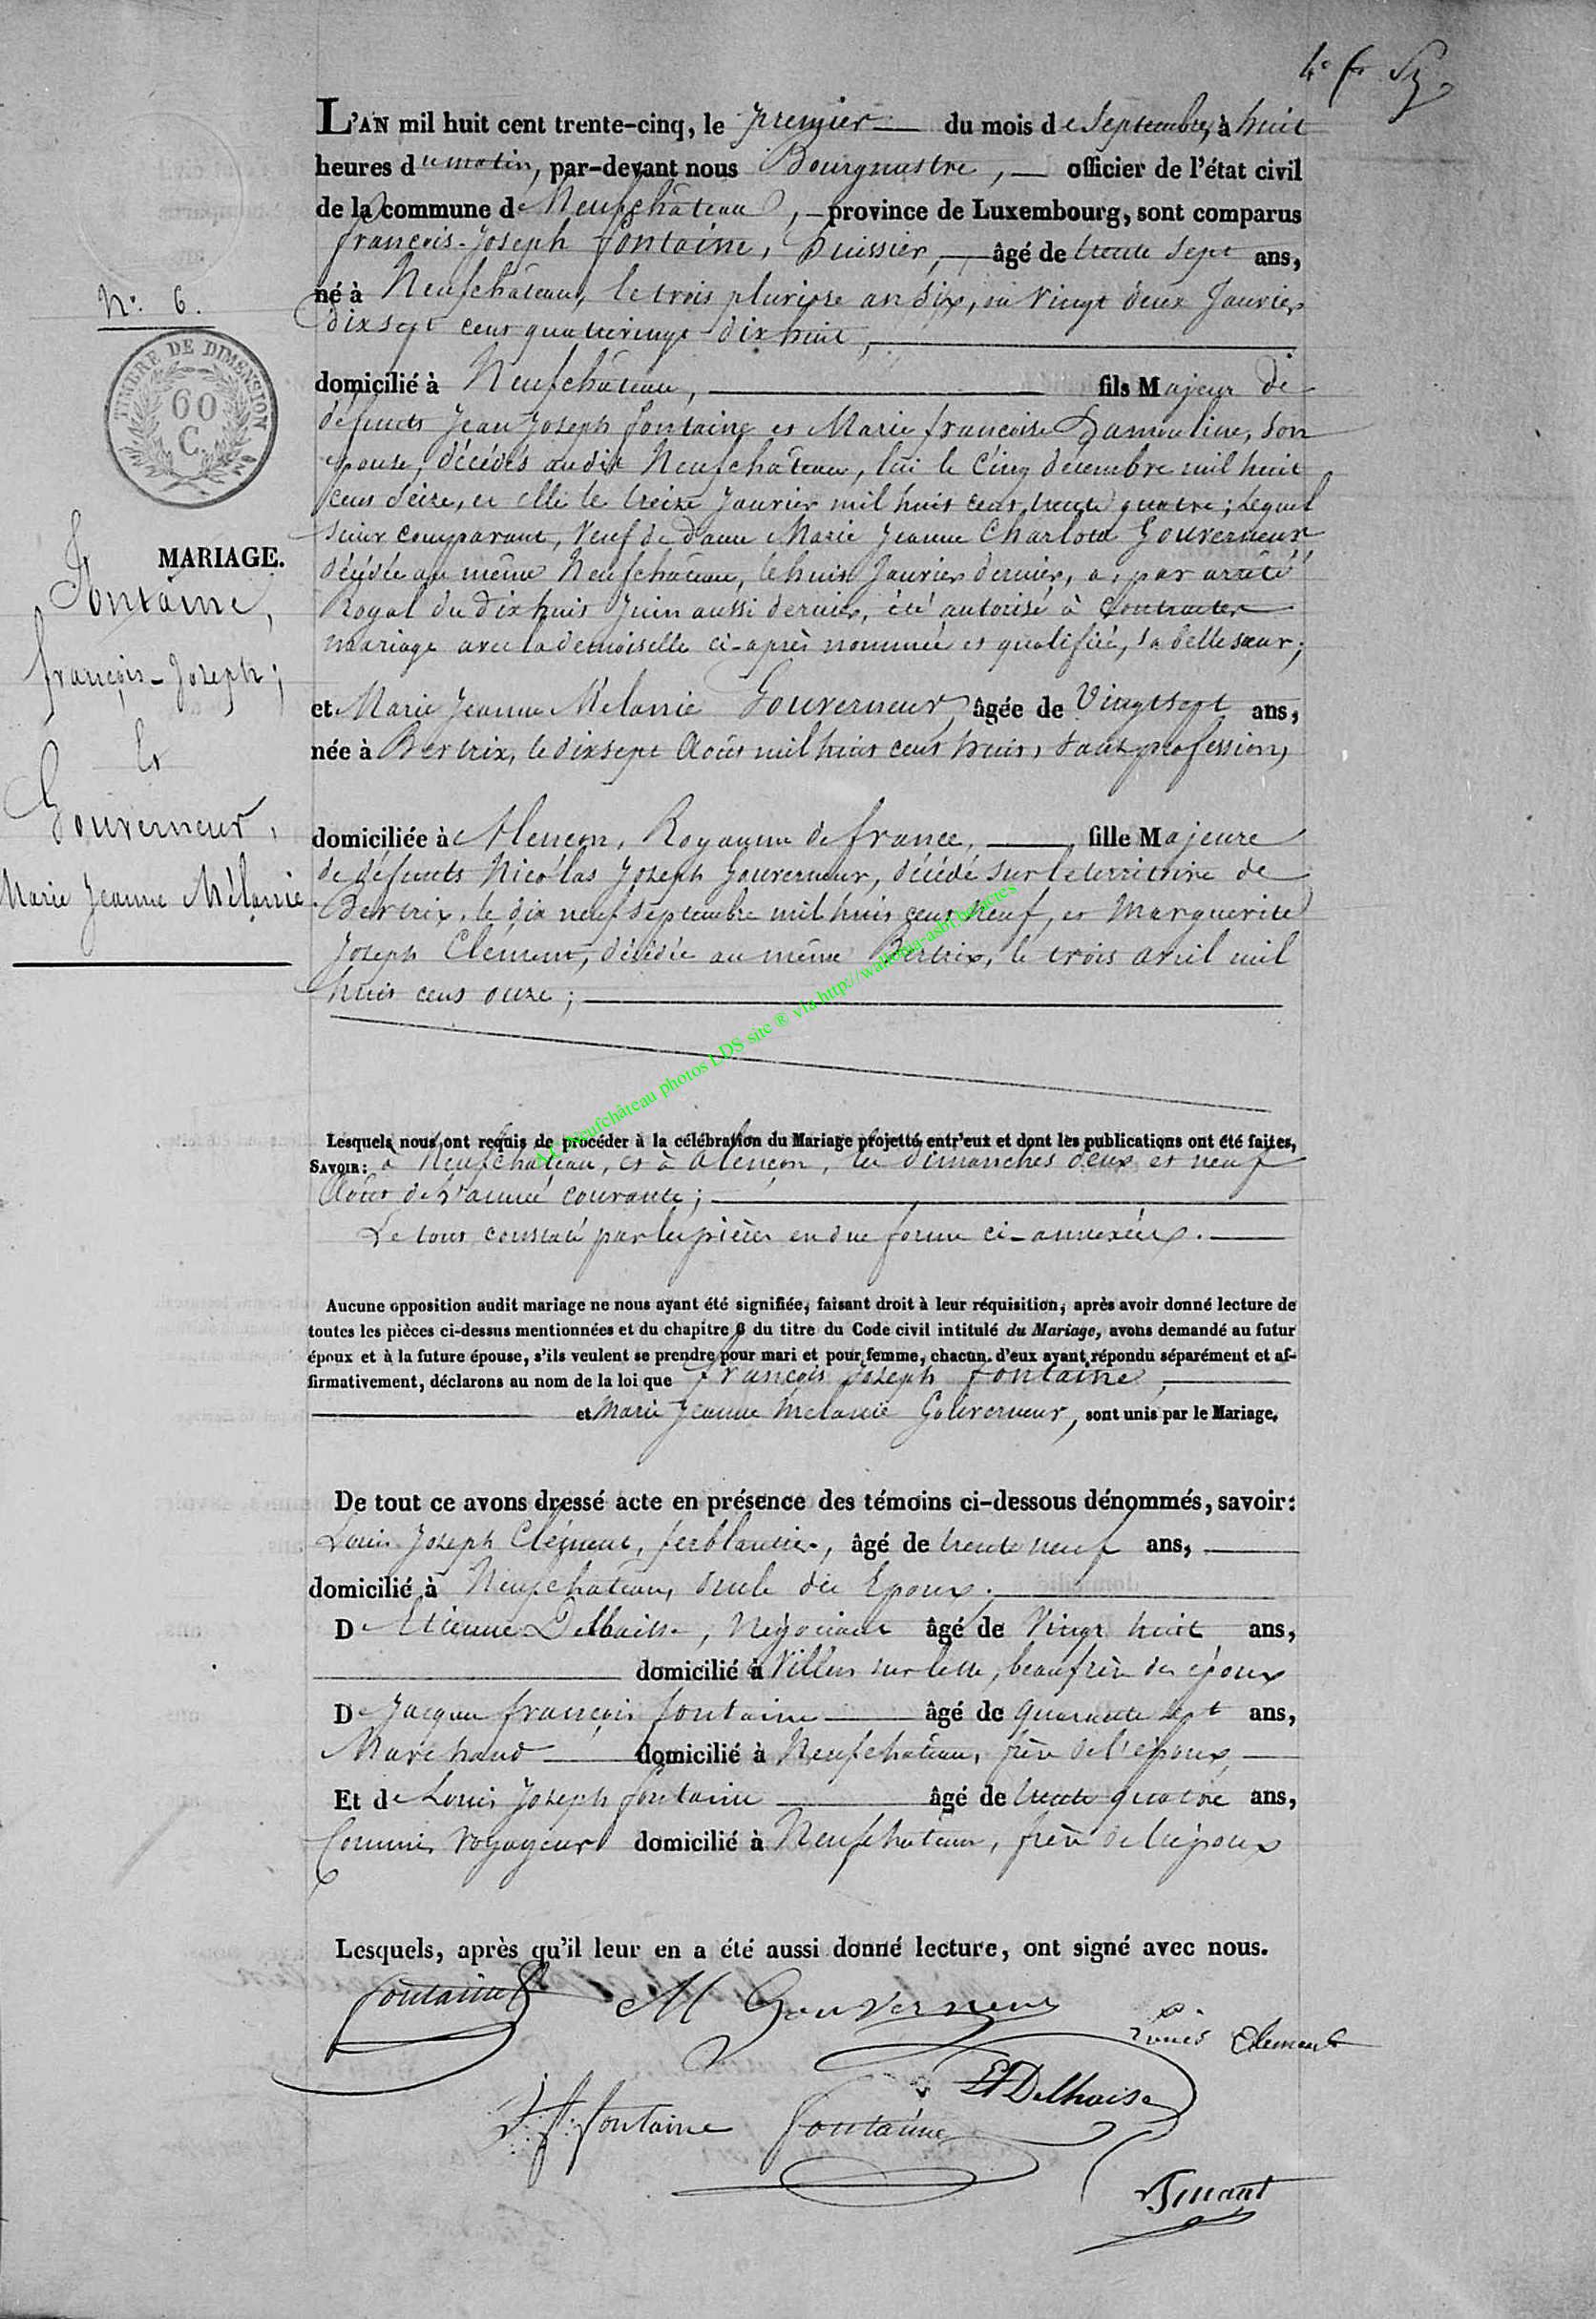 4e f. Sz
L'AN mil huit cent trente-cinq, le premier du mois de Septembre, à huit
heures du matin, par-devant nous Bourgmestre, officier de l'état civil
de la commune de Neufchâteau, province de Luxembourg, sont comparus
françois-Joseph fontaine, huissier, âgé de trente sept ans,
né à Neufchâteau, le trois pluviose an six, ou vingt deux Janvier
dix sept cent quatrevingt-dix huit,
N.° 6.
TIMBRE DE DIMENSION
60
C.
domicilié à Neufchâteau, fils Majeur de
défunts Jean Joseph fontaine et Marie françoise Damouline, son
épouse, décédés audit Neufchâteau, lui le cinq décembre mil huit
cent seize, et elle le treize Janvier mil huit cent trente quatre; lequel
sieur comparant, veuf de dame Marie Jeanne Charlotte Gouverneur
décédée au même Neufchâteau, le huit Janvier dernier, a, par arrêté
Royal du dix huit Juin aussi dernier, été autorisé à contracter
mariage avec la demoiselle ci-après nommée et qualifiée, sa belle sœur;
MARIAGE.
Fontaine,
françois-Joseph;
et
Gouverneur,
Marie Jeanne Mélanie
et Marie Jeanne Mélanie Gouverneur, âgée de Vingt sept ans,
née à Bertrix, le dix sept Août mil huit cent huit, sans profession,
domiciliée à Alençon, Royaume de france, fille Majeure
de défunts Nicolas Joseph Gouverneur, décédé sur le territoire de
Bertrix, le dix neuf septembre mil huit cent neuf, et Marguerite
Joseph Clément, décédée au même Bertrix, le trois avril mil
huit cent onze;
Neufchâteau photos LDS site ® via http://wallonia-asbl.be/actes
Lesquels nous ont requis de procéder à la célébration du Mariage projetté entr'eux et dont les publications ont été faites,
SAVOIR: à Neufchâteau, et à Alençon, les dimanches deux et neuf
Août de l'année courante;
Le tout constaté par les pièces en due forme ci-annexées.
Aucune opposition audit mariage ne nous ayant été signifiée, faisant droit à leur réquisition, après avoir donné lecture de
toutes les pièces ci-dessus mentionnées et du chapitre 6 du titre du Code civil intitulé du Mariage, avons demandé au futur
époux et à la future épouse, s'ils veulent se prendre pour mari et pour femme, chacun d'eux ayant répondu séparément et af-
firmativement, déclarons au nom de la loi que François Joseph fontaine,
et Marie Jeanne Mélanie Gouverneur, sont unis par le Mariage.
De tout ce avons dressé acte en présence des témoins ci-dessous dénommés, savoir:
Louis Joseph Clément, ferblantier, âgé de trente neuf ans,
domicilié à Neufchâteau, oncle des Epoux.
De Etienne Delhaisse, Négociant âgé de Vingt huit ans,
domicilié à Villers sur lesse, beaufrère des époux
De Jacques françois fontaine âgé de quarante sept ans,
Marchand domicilié à Neufchâteau, frère de l'époux,
Et de Louis Joseph fontaine âgé de trente quatre ans,
Commis Voyageur domicilié à Neufchâteau, frère de l'époux
Lesquels, après qu'il leur en a été aussi donné lecture, ont signé avec nous.
fontaine
M Gouverneur
Louis Clement
Et Delhaise
J. f. fontaine
fontaine